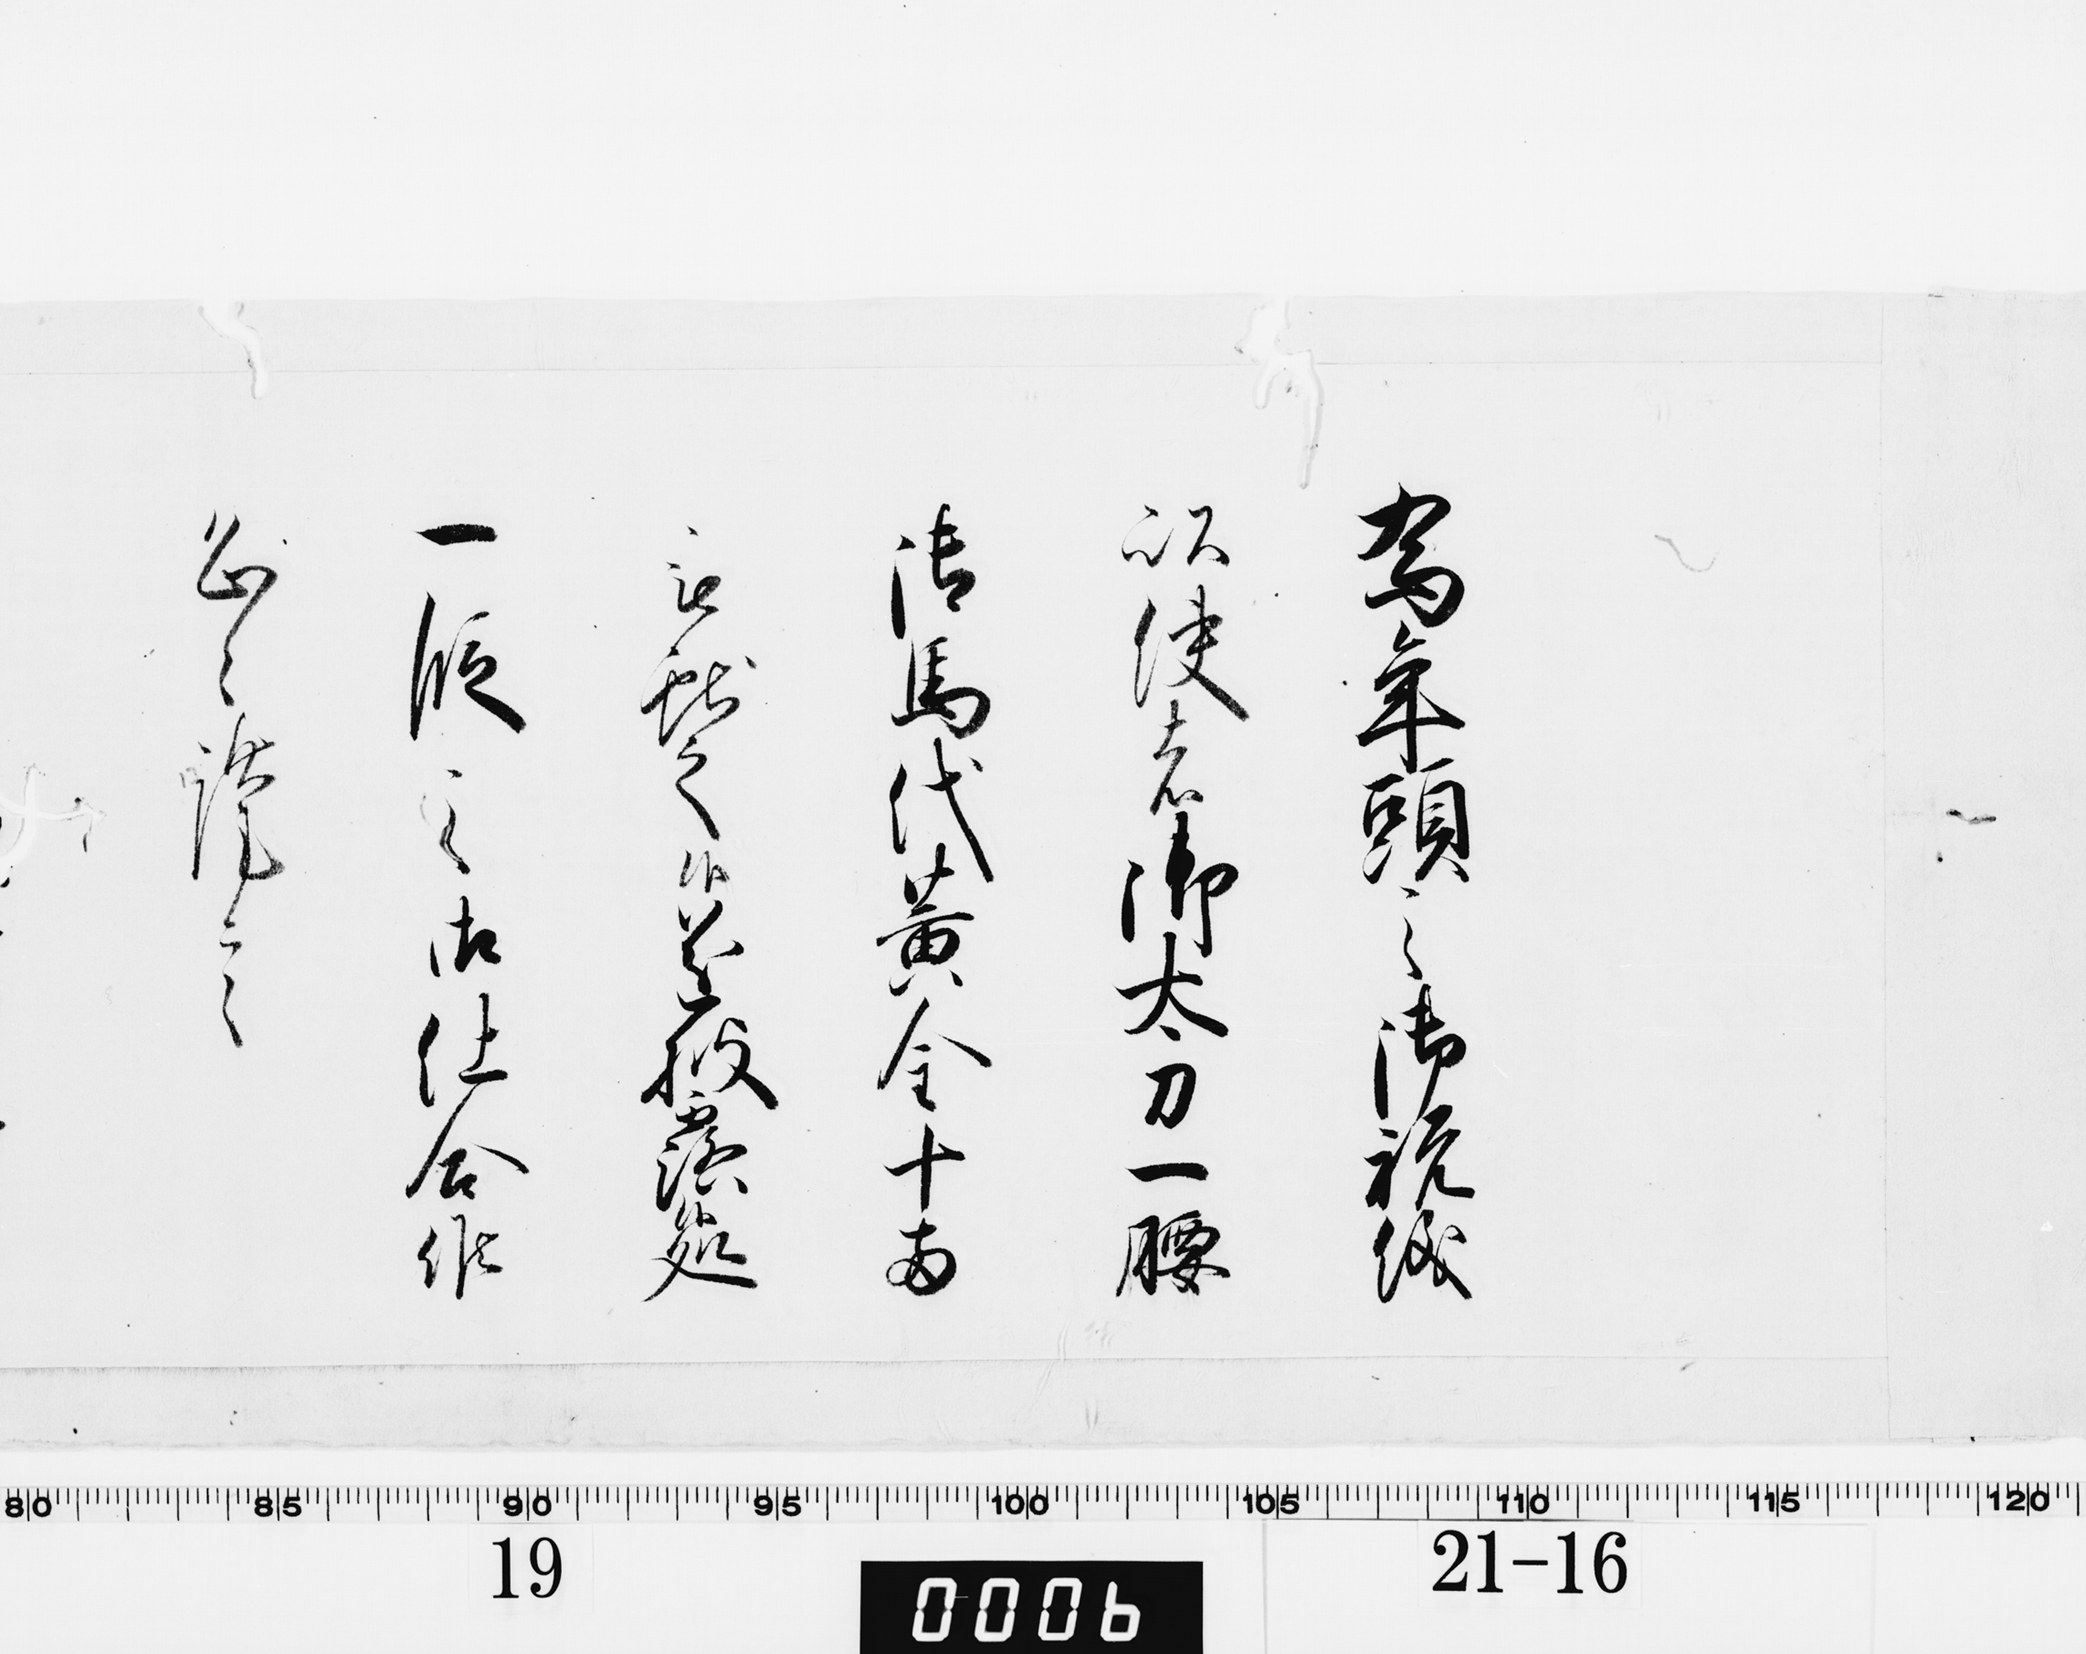 為年頭之御祝儀
以使者御太刀一腰
御馬代黄金十両
被献之候遂披露処
一段之御仕合候
恐々謹言
80 85 90 95 100 105 110 115 120
19
0006
21-16